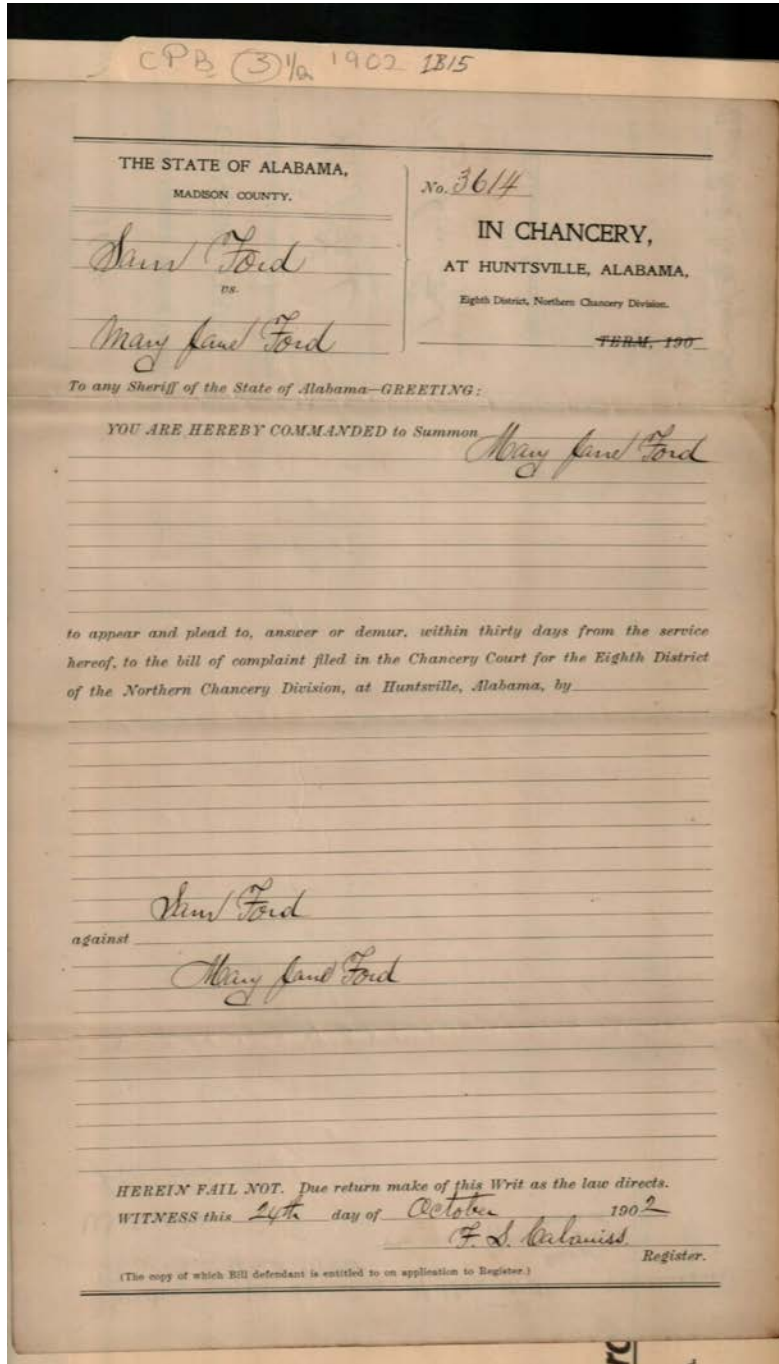 CPB (3) 1/2 1902 1815
THE STATE OF ALABAMA,
MADISON COUNTY.
Sam Ford
vs.
Mary Jane Ford
No. 3614
IN CHANCERY,
AT HUNTSVILLE, ALABAMA,
Eighth District, Northern Chancery Division.
TERM, 190
To any Sheriff of the State of Alabama—GREETING:
YOU ARE HEREBY COMMANDED to Summon Mary Jane Ford
to appear and plead to, answer or demur, within thirty days from the service
hereof, to the bill of complaint filed in the Chancery Court for the Eighth District
of the Northern Chancery Division, at Huntsville, Alabama, by
Sam Ford
against
Mary Jane Ford
HEREIN FAIL NOT. Due return make of this Writ as the law directs.
WITNESS this 24th day of October 1902
F. S. Cabaniss.
Register.
(The copy of which Bill defendant is entitled to on application to Register.)